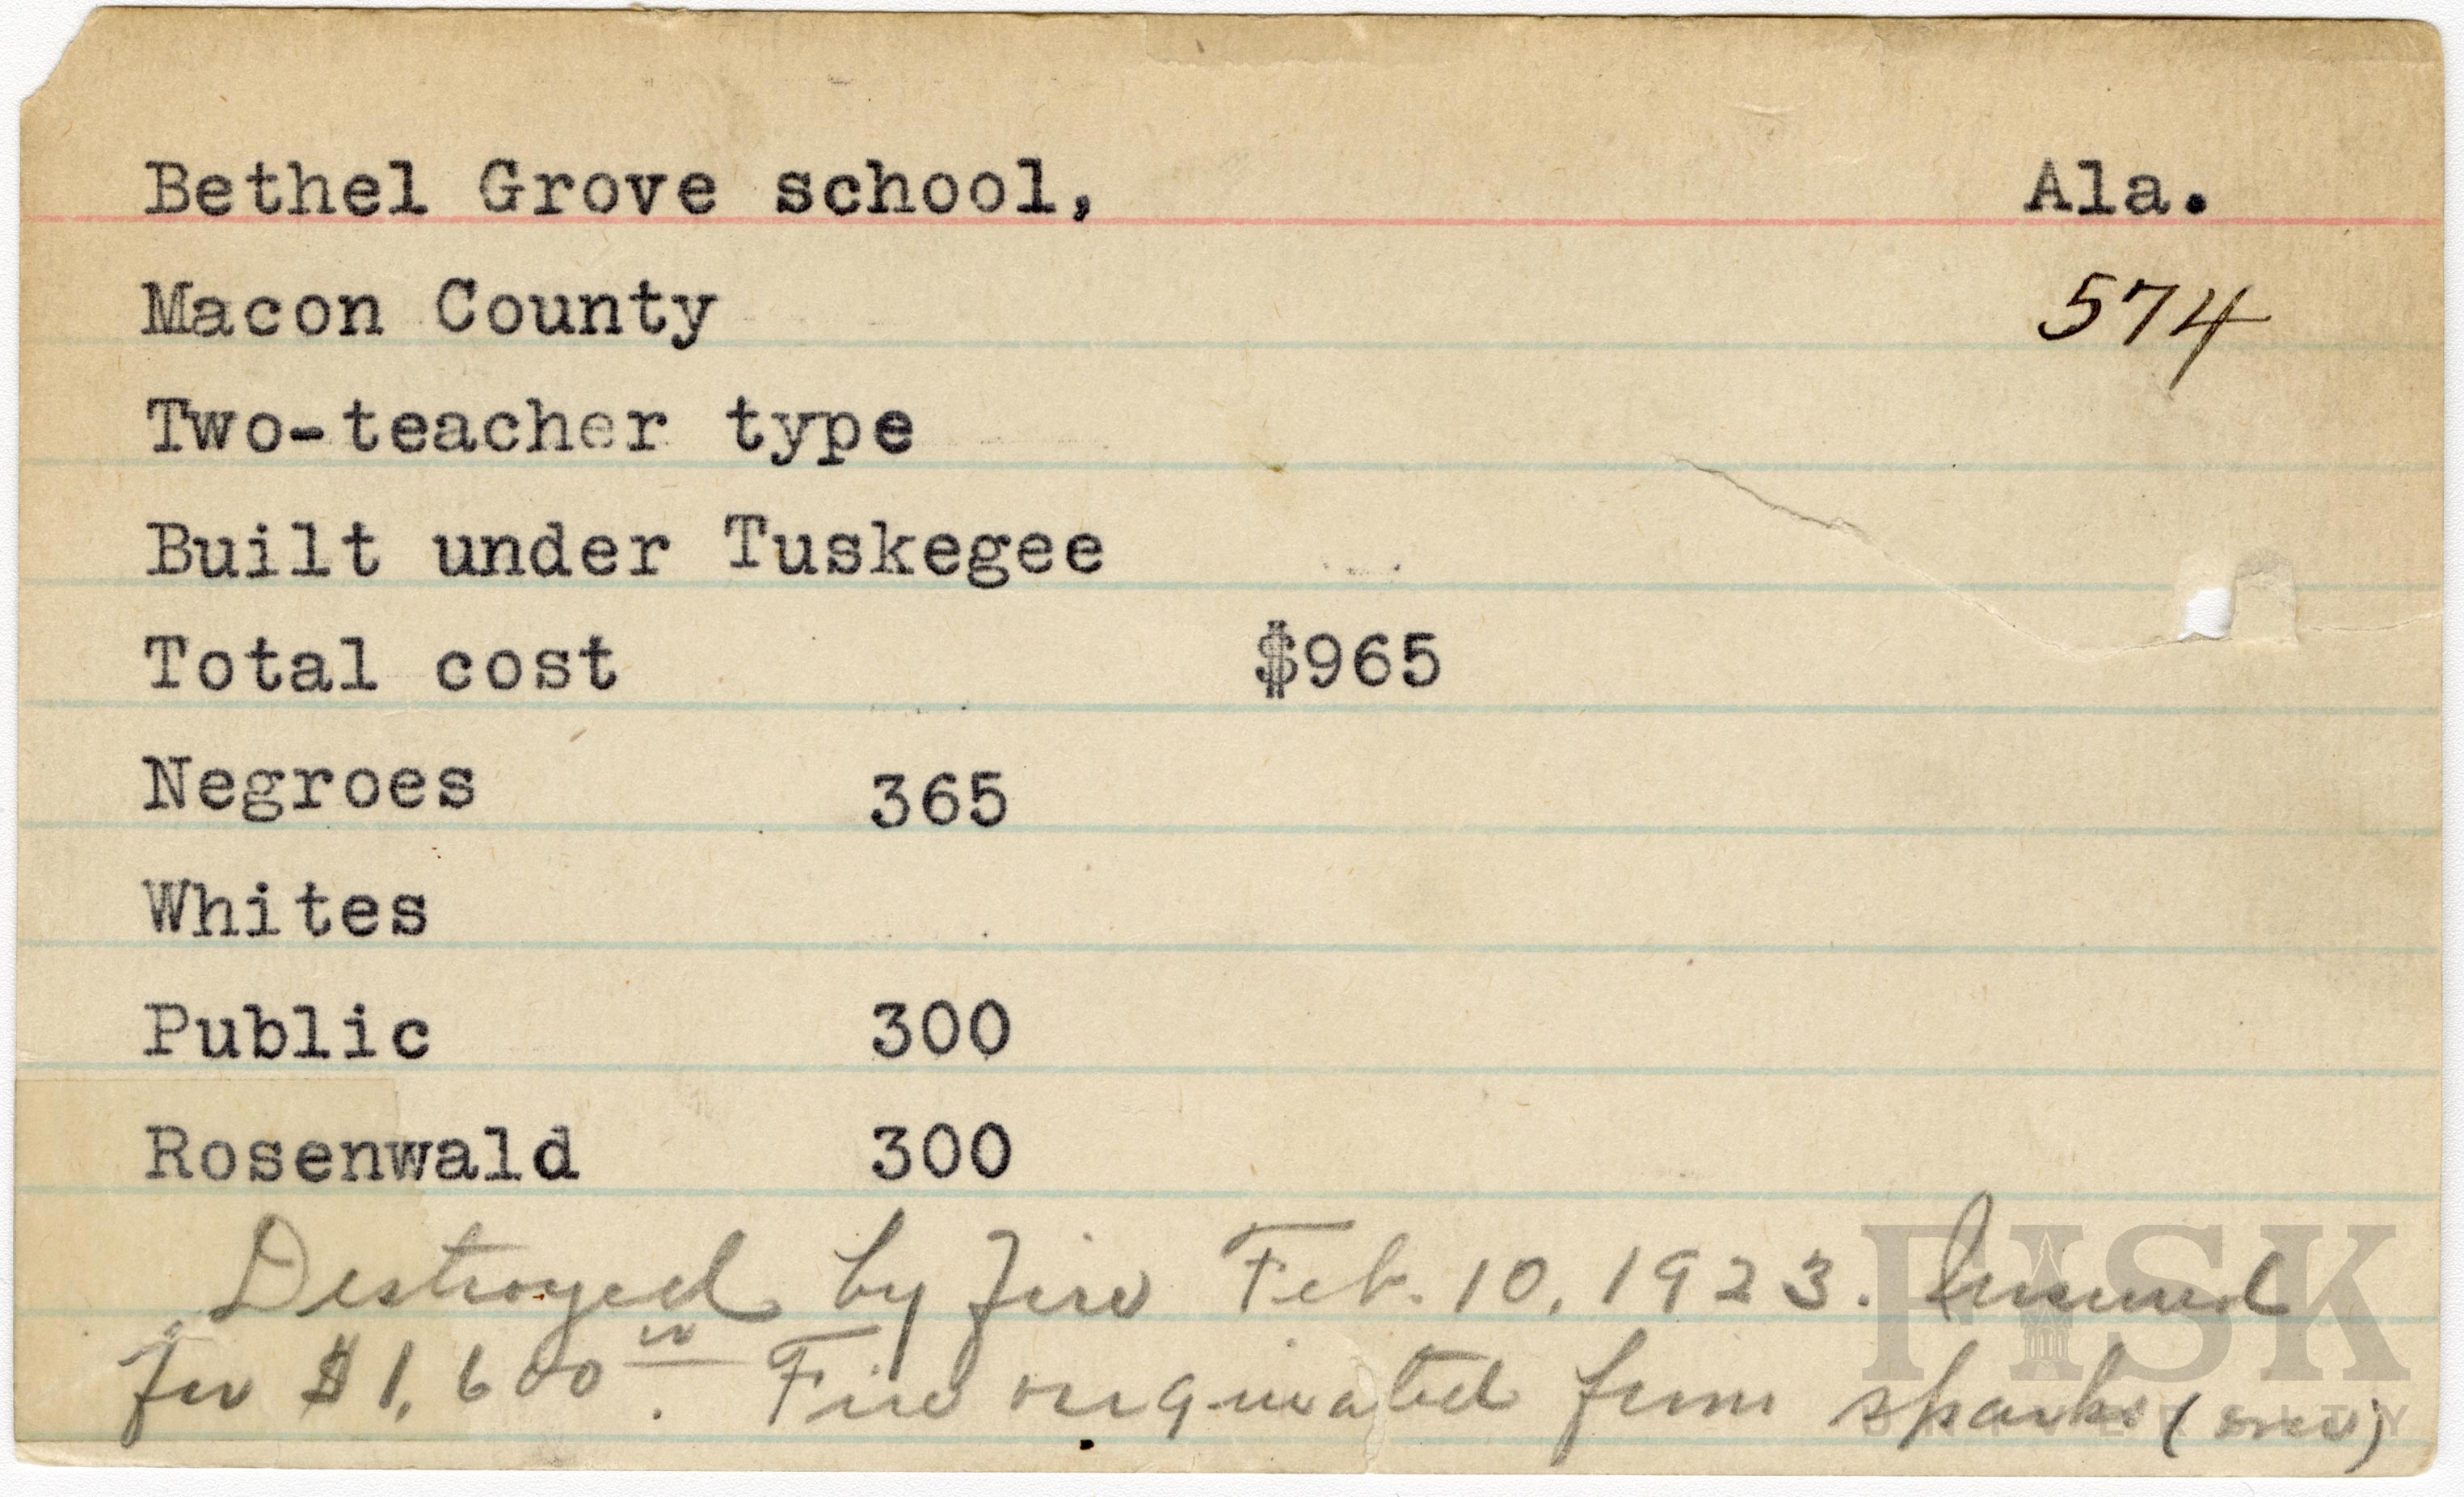 Bethel Grove school, Ala.
Macon County 574
Two-teacher type
Built under Tuskegee
Total cost $965
Negroes 365
Whites
Public 300
Rosenwald 300
Destroyed by fire Feb. 10, 1923. Insured
for $1,600 00. Fire originated from sparks (over)
FISK
UNIVERSITY